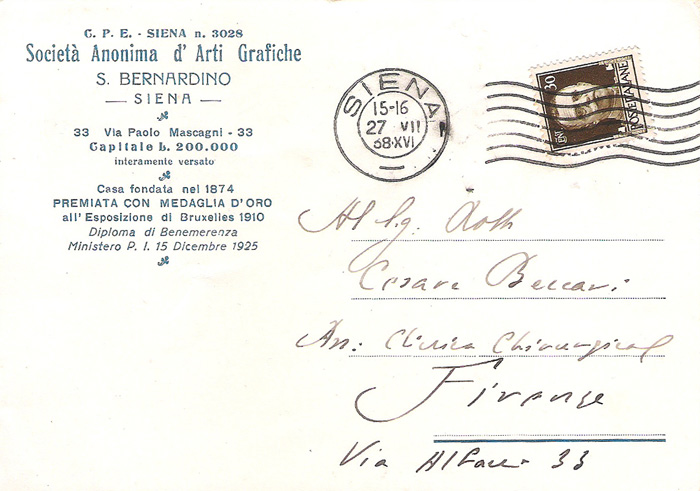 C. P. E. - SIENA n. 3028
Società Anonima d' Arti Grafiche
S. BERNARDINO
— SIENA —
33 Via Paolo Mascagni - 33
Capitale L. 200.000
interamente versato
Casa fondata nel 1874
PREMIATA CON MEDAGLIA D'ORO
all' Esposizione di Bruxelles 1910
Diploma di Benemerenza
Ministero P. I. 15 Dicembre 1925
SIENA
15-16
27 VII
38·XVI
30
POSTE ITALIANE
Al Sig. Dott
Cesare Beccari
Clinica Chirurgical
Firenze
Via Alfani 33